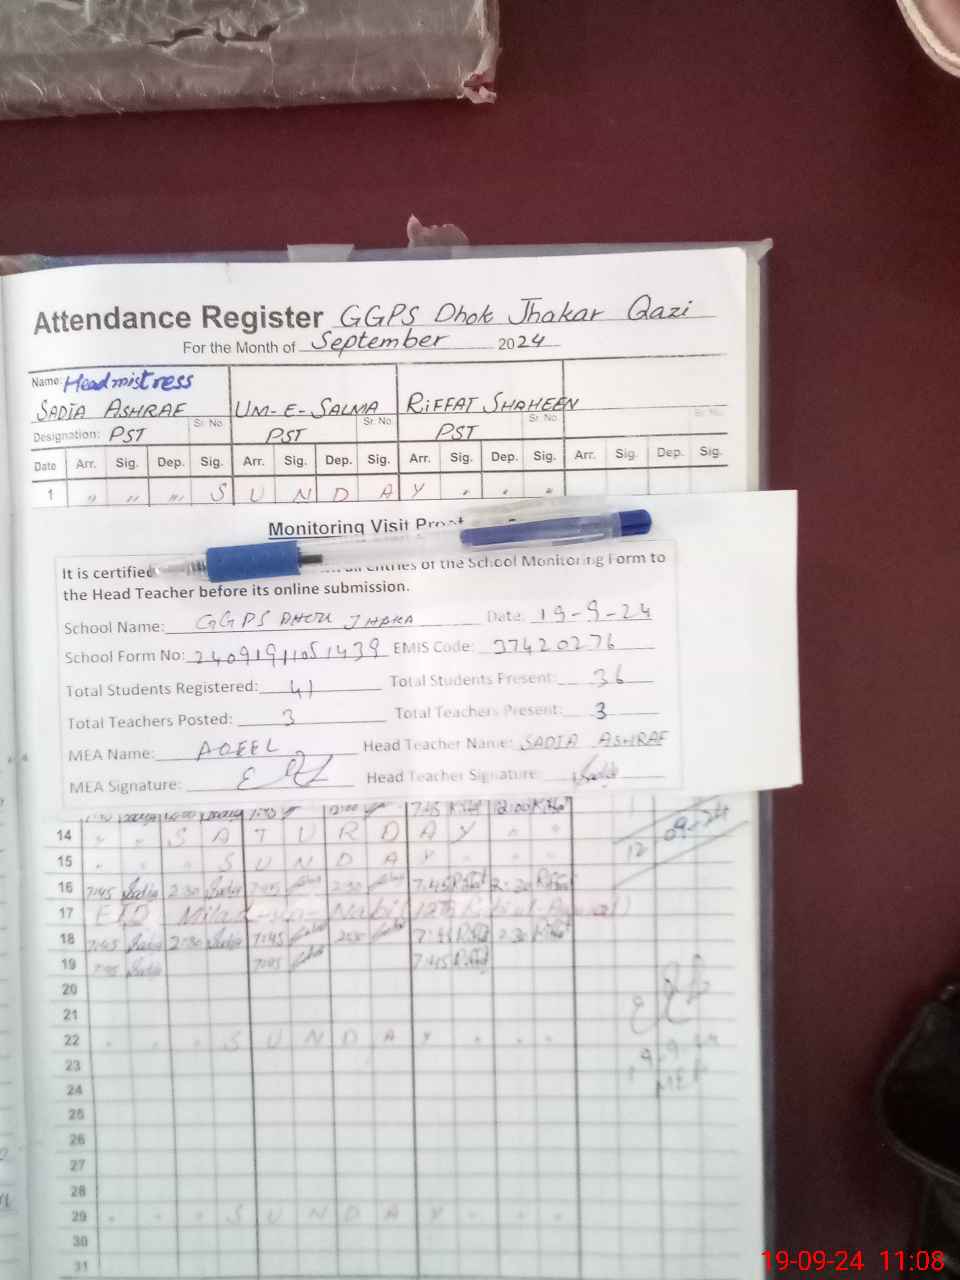 Attendance Register GGPS Dhok Jhakar Qazi
For the Month of September 2024
Name: Headmistress
SADIA ASHRAF UM-E-SALMA RIFFAT SHAHEEN
Sr. No. Sr. No. Sr. No. Sr. No.
Designation: PST PST PST
Date Arr. Sig. Dep. Sig. Arr. Sig. Dep. Sig. Arr. Sig. Dep. Sig. Arr. Sig. Dep. Sig.
1 " " " S U N D A Y
Monitoring Visit
It is certified all entries of the School Monitoring Form to
the Head Teacher before its online submission.
School Name: GGPS DHOK JHAKA Date: 19-9-24
School Form No: 24091911051439 EMIS Code: 37420276
Total Students Registered: 41 Total Students Present: 36
Total Teachers Posted: 3 Total Teachers Present: 3
MEA Name: AQEEL Head Teacher Name: SADIA ASHRAF
MEA Signature: Head Teacher Signature:
12:00 7:45 12:00
14 S A T U R D A Y
12 09-24
15 S U N D A Y
16 7:45 Sadia 2:30 Sadia 7:45 2:30 7:45 Riffat 2:30 Riffat
17 EID Milad-un-Nabi (12th Rabi-ul-Awwal)
18 7:45 Sadia 2:30 Sadia 7:45 2:30 7:45 Riffat 2:30 Riffat
19 7:45 Sadia 7:45 7:45 Riffat
20
21
22 S U N D A Y
19.9.24
23
MEA
24
25
26
27
28
29 S U N D A Y
30
31
19-09-24 11:08